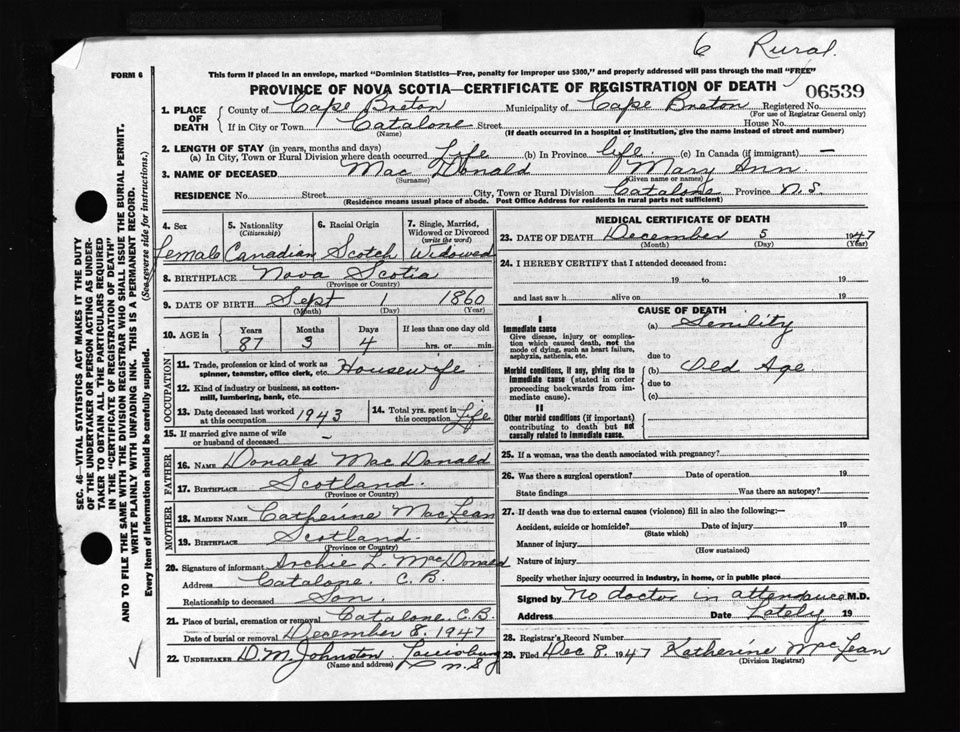 6 Rural.
FORM 6
This form if placed in an envelope, marked "Dominion Statistics—Free, penalty for improper use $300," and properly addressed will pass through the mail "FREE"
PROVINCE OF NOVA SCOTIA—CERTIFICATE OF REGISTRATION OF DEATH
06539
1. PLACE OF DEATH
County of Cape Breton Municipality of Cape Breton Registered No.
(For use of Registrar General only)
If in City or Town Catalone Street House No.
(Name) (If death occurred in a hospital or institution, give the name instead of street and number)
2. LENGTH OF STAY (in years, months and days)
(a) In City, Town or Rural Division where death occurred Life (b) In Province life. (c) In Canada (if immigrant) —
3. NAME OF DECEASED Mac Donald Mary Ann.
(Surname) (Given name or names)
RESIDENCE No. Street City, Town or Rural Division Catalone Province N.S.
(Residence means usual place of abode. Post Office Address for residents in rural parts not sufficient)
SEC. 46—VITAL STATISTICS ACT MAKES IT THE DUTY
OF THE UNDERTAKER OR PERSON ACTING AS UNDER-
TAKER TO OBTAIN ALL THE PARTICULARS REQUIRED
IN THE "CERTIFICATE OF REGISTRATION OF DEATH"
AND TO FILE THE SAME WITH THE DIVISION REGISTRAR WHO SHALL ISSUE THE BURIAL PERMIT.
WRITE PLAINLY WITH UNFADING INK. THIS IS A PERMANENT RECORD.
Every item of information should be carefully supplied. (See reverse side for instructions.)
4. Sex
Female
5. Nationality
(Citizenship)
Canadian
6. Racial Origin
Scotch
7. Single, Married,
Widowed or Divorced
(write the word)
Widowed
8. BIRTHPLACE Nova Scotia
(Province or Country)
9. DATE OF BIRTH Sept 1 1860
(Month) (Day) (Year)
10. AGE in Years Months Days If less than one day old
87 3 4 hrs. or min.
OCCUPATION
11. Trade, profession or kind of work as
spinner, teamster, office clerk, etc. Housewife.
12. Kind of industry or business, as cotton-
mill, lumbering, bank, etc.
13. Date deceased last worked
at this occupation 1943
14. Total yrs. spent in
this occupation Life
15. If married give name of wife
or husband of deceased –
FATHER
16. NAME Donald Mac Donald
17. BIRTHPLACE Scotland.
(Province or Country)
MOTHER
18. MAIDEN NAME Catherine MacLean
19. BIRTHPLACE Scotland.
(Province or Country)
20. Signature of informant Archie L. MacDonald
Address Catalone. C.B.
Relationship to deceased Son.
21. Place of burial, cremation or removal Catalone. C.B.
Date of burial or removal December 8. 1947
22. UNDERTAKER D.M. Johnston. Louisburg
N.S
(Name and address)
MEDICAL CERTIFICATE OF DEATH
23. DATE OF DEATH December 5 1947
(Month) (Day) (Year)
24. I HEREBY CERTIFY that I attended deceased from:
19 to 19
and last saw h alive on 19
CAUSE OF DEATH
I
Immediate cause
Give disease, injury or complica-
tion which caused death, not the
mode of dying, such as heart failure,
asphyxia, asthenia, etc.
(a) Senility
due to
Morbid conditions, if any, giving rise to
immediate cause (stated in order
proceeding backwards from im-
mediate cause).
(b) Old Age
due to
(c)
II
Other morbid conditions (if important)
contributing to death but not
causally related to immediate cause.
25. If a woman, was the death associated with pregnancy?
26. Was there a surgical operation? Date of operation 19
State findings Was there an autopsy?
27. If death was due to external causes (violence) fill in also the following:—
Accident, suicide or homicide? Date of injury 19
(State which)
Manner of injury
(How sustained)
Nature of injury
Specify whether injury occurred in industry, in home, or in public place
Signed by No doctor in attendance M.D.
Address Date Lately 19
28. Registrar's Record Number
29. Filed Dec 8. 1947 Katherine MacLean
(Division Registrar)